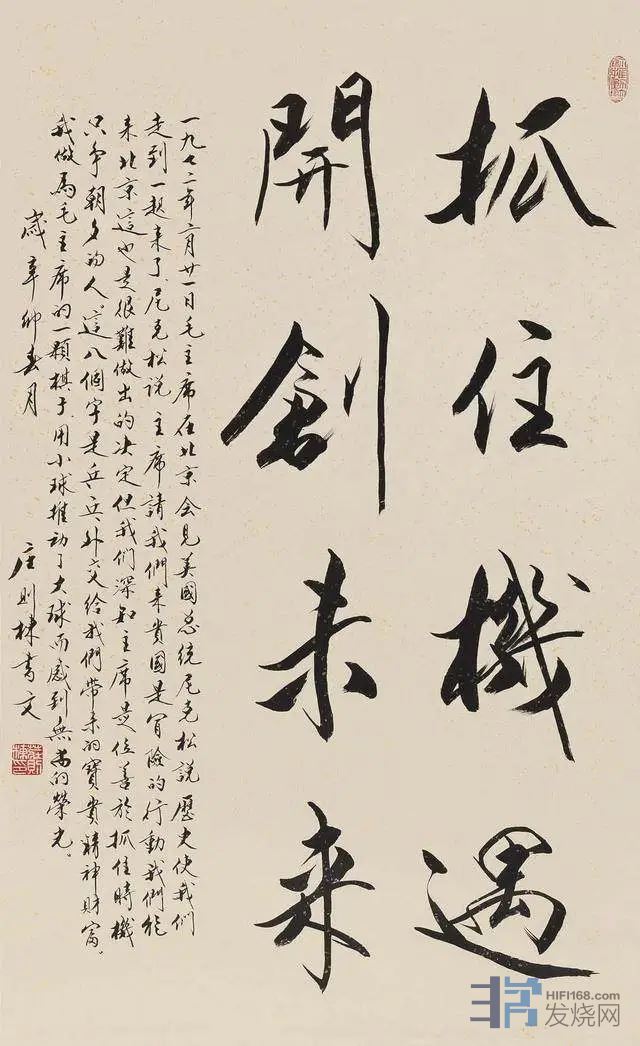 抓住機遇
開創未来
一九七二年二月廿一日毛主席在北京会见美國总统尼克松説歷史使我们
走到一起来了尼克松说主席請我們来貴國是冒險的行動我們於
来北京這也是很難做出的决定但我们深知主席是位善於抓住時機
只争朝夕的人這八個字是乒乓外交给我們带来的寶貴精神財富。
我做為毛主席的一顆棋子用小球推动了大球而感到無尚的榮光。
歲辛卯春月
庄则棟書文
HIFI168.com
发烧网